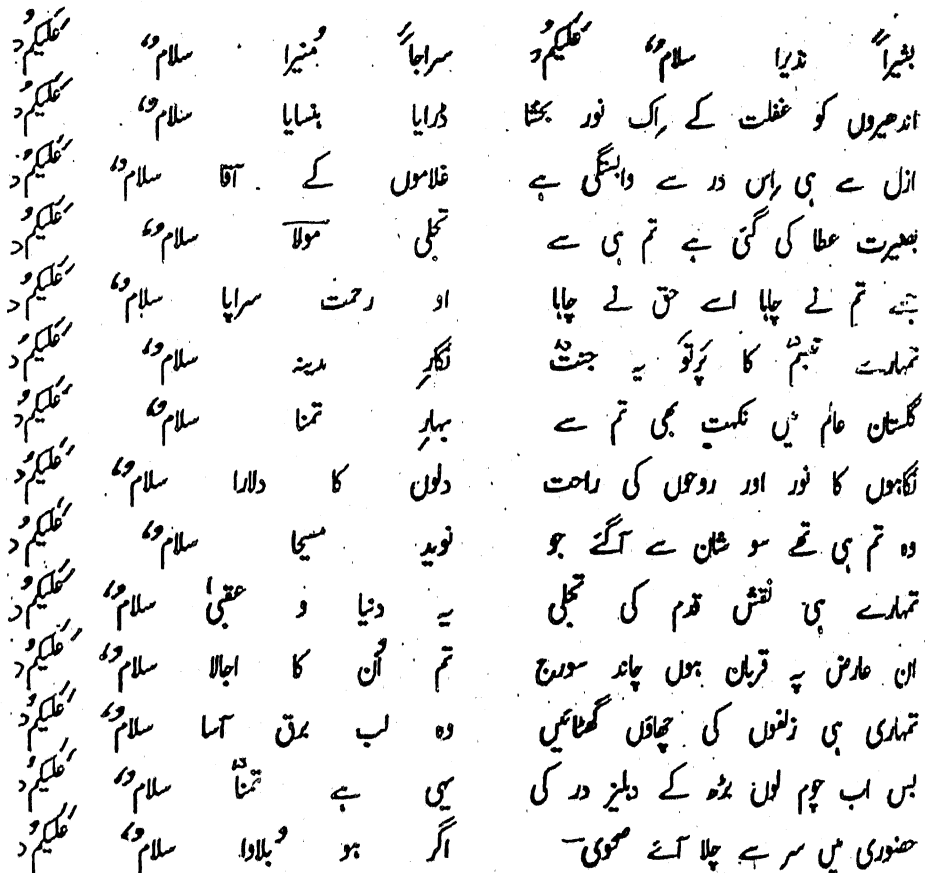 بشیراً نذیرا سلامٌ علیکُم سراجاً مُنیرا سلامٌ علیکُم
اندھیروں کو غفلت کے اِک نور بخشا ڈرایا ہنسایا سلامٌ علیکُم
ازل سے ہی اِس در سے وابستگی ہے غلاموں کے آقا سلامٌ علیکُم
بصیرت عطا کی گئی ہے تم ہی سے تجلی مولا سلامٌ علیکُم
جسے تم نے چاہا اسے حق نے چاہا او رحمت سراپا سلامٌ علیکُم
تمہارے تبسم کا پَرتَو یہ جنت نگارِ مدینہ سلامٌ علیکُم
گلستان عالم میں نکہت بھی تم سے بہارِ تمنا سلامٌ علیکُم
نگاہوں کا نور اور روحوں کی راحت دلوں کا دلارا سلامٌ علیکُم
وہ تم ہی تھے سو شان سے آگئے جو نوید مسیحا سلامٌ علیکُم
تمہارے ہی نقش قدم کی تجلی یہ دنیا و عقبیٰ سلامٌ علیکُم
ان عارض پہ قربان ہوں چاند سورج تم اُن کا اجالا سلامٌ علیکُم
تمہاری ہی زلفوں کی چھاؤں گھٹائیں وہ لب برق آسا سلامٌ علیکُم
بس اب چوم لوں بڑھ کے دہلیز در کی یہی ہے تمنا سلامٌ علیکُم
حضوری میں سر سے چلا آئے صحوی اگر ہو بُلاوا سلامٌ علیکُم